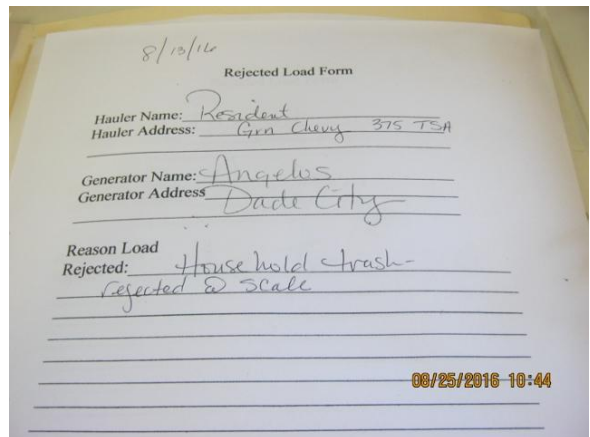 8/13/16
Rejected Load Form
Hauler Name: Resident
Hauler Address: Grn Chevy 375 TSA
Generator Name: Angelos
Generator Address Dade City
Reason Load
Rejected: House hold trash-
rejected @ scale
08/25/2016 10:44